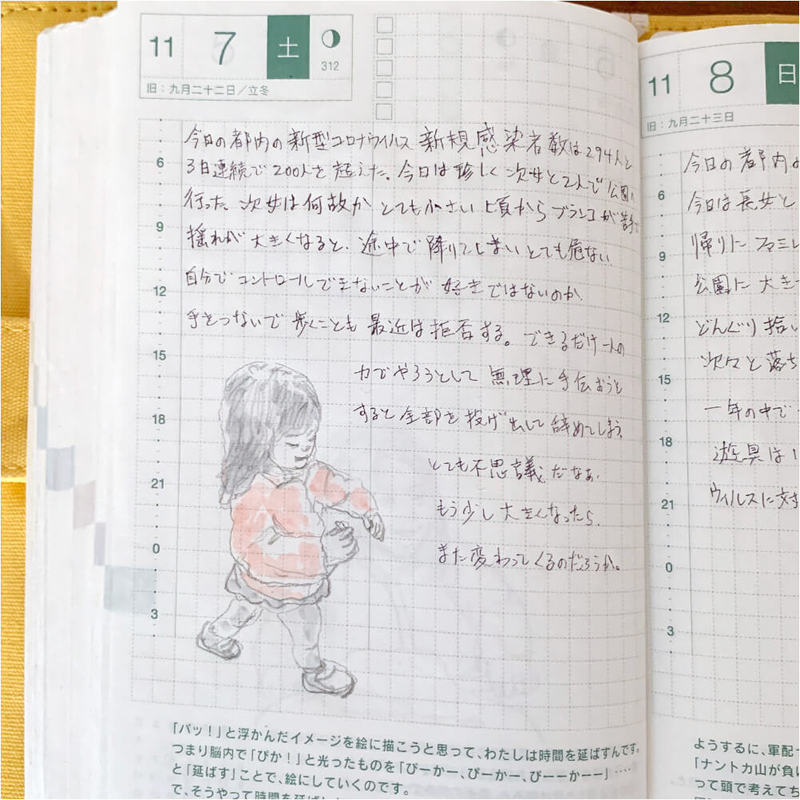 11 7 土
312
旧：九月二十二日／立冬
今日の都内の新型コロナウイルス 新規感染者数は294人と
3日連続で200人を超えた。今日は珍しく次女と2人で公園へ
行った。次女は何故かとても小さい頃からブランコが苦手で
揺れが大きくなると、途中で降りてしまいとても危ない。
自分でコントロールできないことが好きではないのか、
手をつないで歩くことも最近は拒否する。できるだけ一人の
力でやろうとして無理に手伝おうと
すると全部を投げ出して辞めてしまう。
とても不思議だなぁ。
もう少し大きくなったら、
また変わってくるのだろうか。
6
9
12
15
18
21
0
3
「バッ！」と浮かんだイメージを絵に描こうと思って、わたしは時間を延ばすんです。
つまり脳内で「ぴか！」と光ったものを「ぴーかー、ぴーかー、ぴーーかーー」‥‥
と「延ばす」ことで、絵にしていくのです。
で、そうやって時間を延ばし
11 8 日
旧：九月二十三日
今日の都内
今日は長女と
帰りにファミレ
公園に大き
どんぐり拾い
次々と落ち
一年の中で
遊具は
ウィルスに対
6
9
12
15
18
21
0
3
ようするに、軍配
「ナントカ山が負け
って頭で考えてち